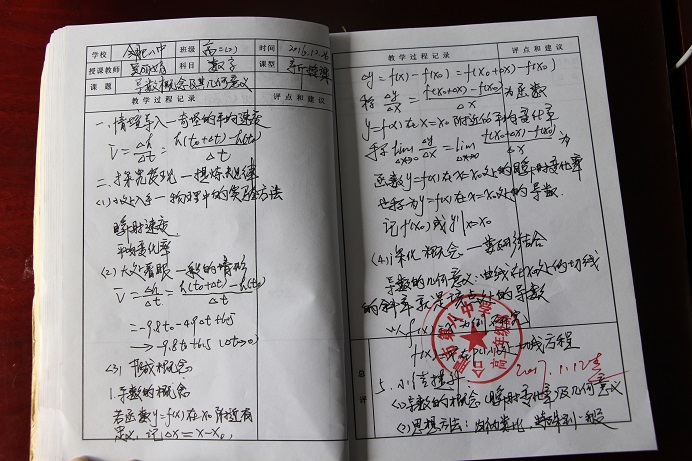 学校 合肥八中 班级 高二(2) 时间 2016.12.26
授课教师 科目 数学 课型 新授课
课题 导数概念及其几何意义
教学过程记录 评点和建议
一、情境导入—高空的平均速度
v̄ = Δh/Δt = (h(t₀+Δt)-h(t₀))/Δt
二、探究发现—提炼规律
(1)小处入手—物理中的实验方法
瞬时速度
平均变化率
(2)大处着眼—一般的情形
v̄ = Δh/Δt = (h(t₀+Δt)-h(t₀))/Δt
=-9.8t₀-4.9Δt+6.5
→-9.8t₀+6.5 (Δt→0)
(3) 形成概念
1.导数的概念
若函数y=f(x)在x₀附近有
意义,记Δx=x-x₀,
教学过程记录 评点和建议
Δy=f(x)-f(x₀)=f(x₀+Δx)-f(x₀)
称 Δy/Δx = (f(x₀+Δx)-f(x₀))/Δx 为函数
y=f(x)在x=x₀附近的平均变化率
称 lim Δx→0 Δy/Δx = lim Δx→0 (f(x₀+Δx)-f(x₀))/Δx 为
函数y=f(x)在x=x₀处的瞬时变化率
也称为y=f(x)在x=x₀处的导数.
记f'(x₀)或y'|x=x₀
(4)深化概念—数形结合
导数的几何意义:曲线在x₀处的切线
的斜率就是该点处的导数
切线方程
总评
5.小结提升: 2017.1.12
(1)导数的概念(瞬时变化率)及几何意义
(2)思想方法:归纳类比 特殊到一般
合肥第八中学
高二年级